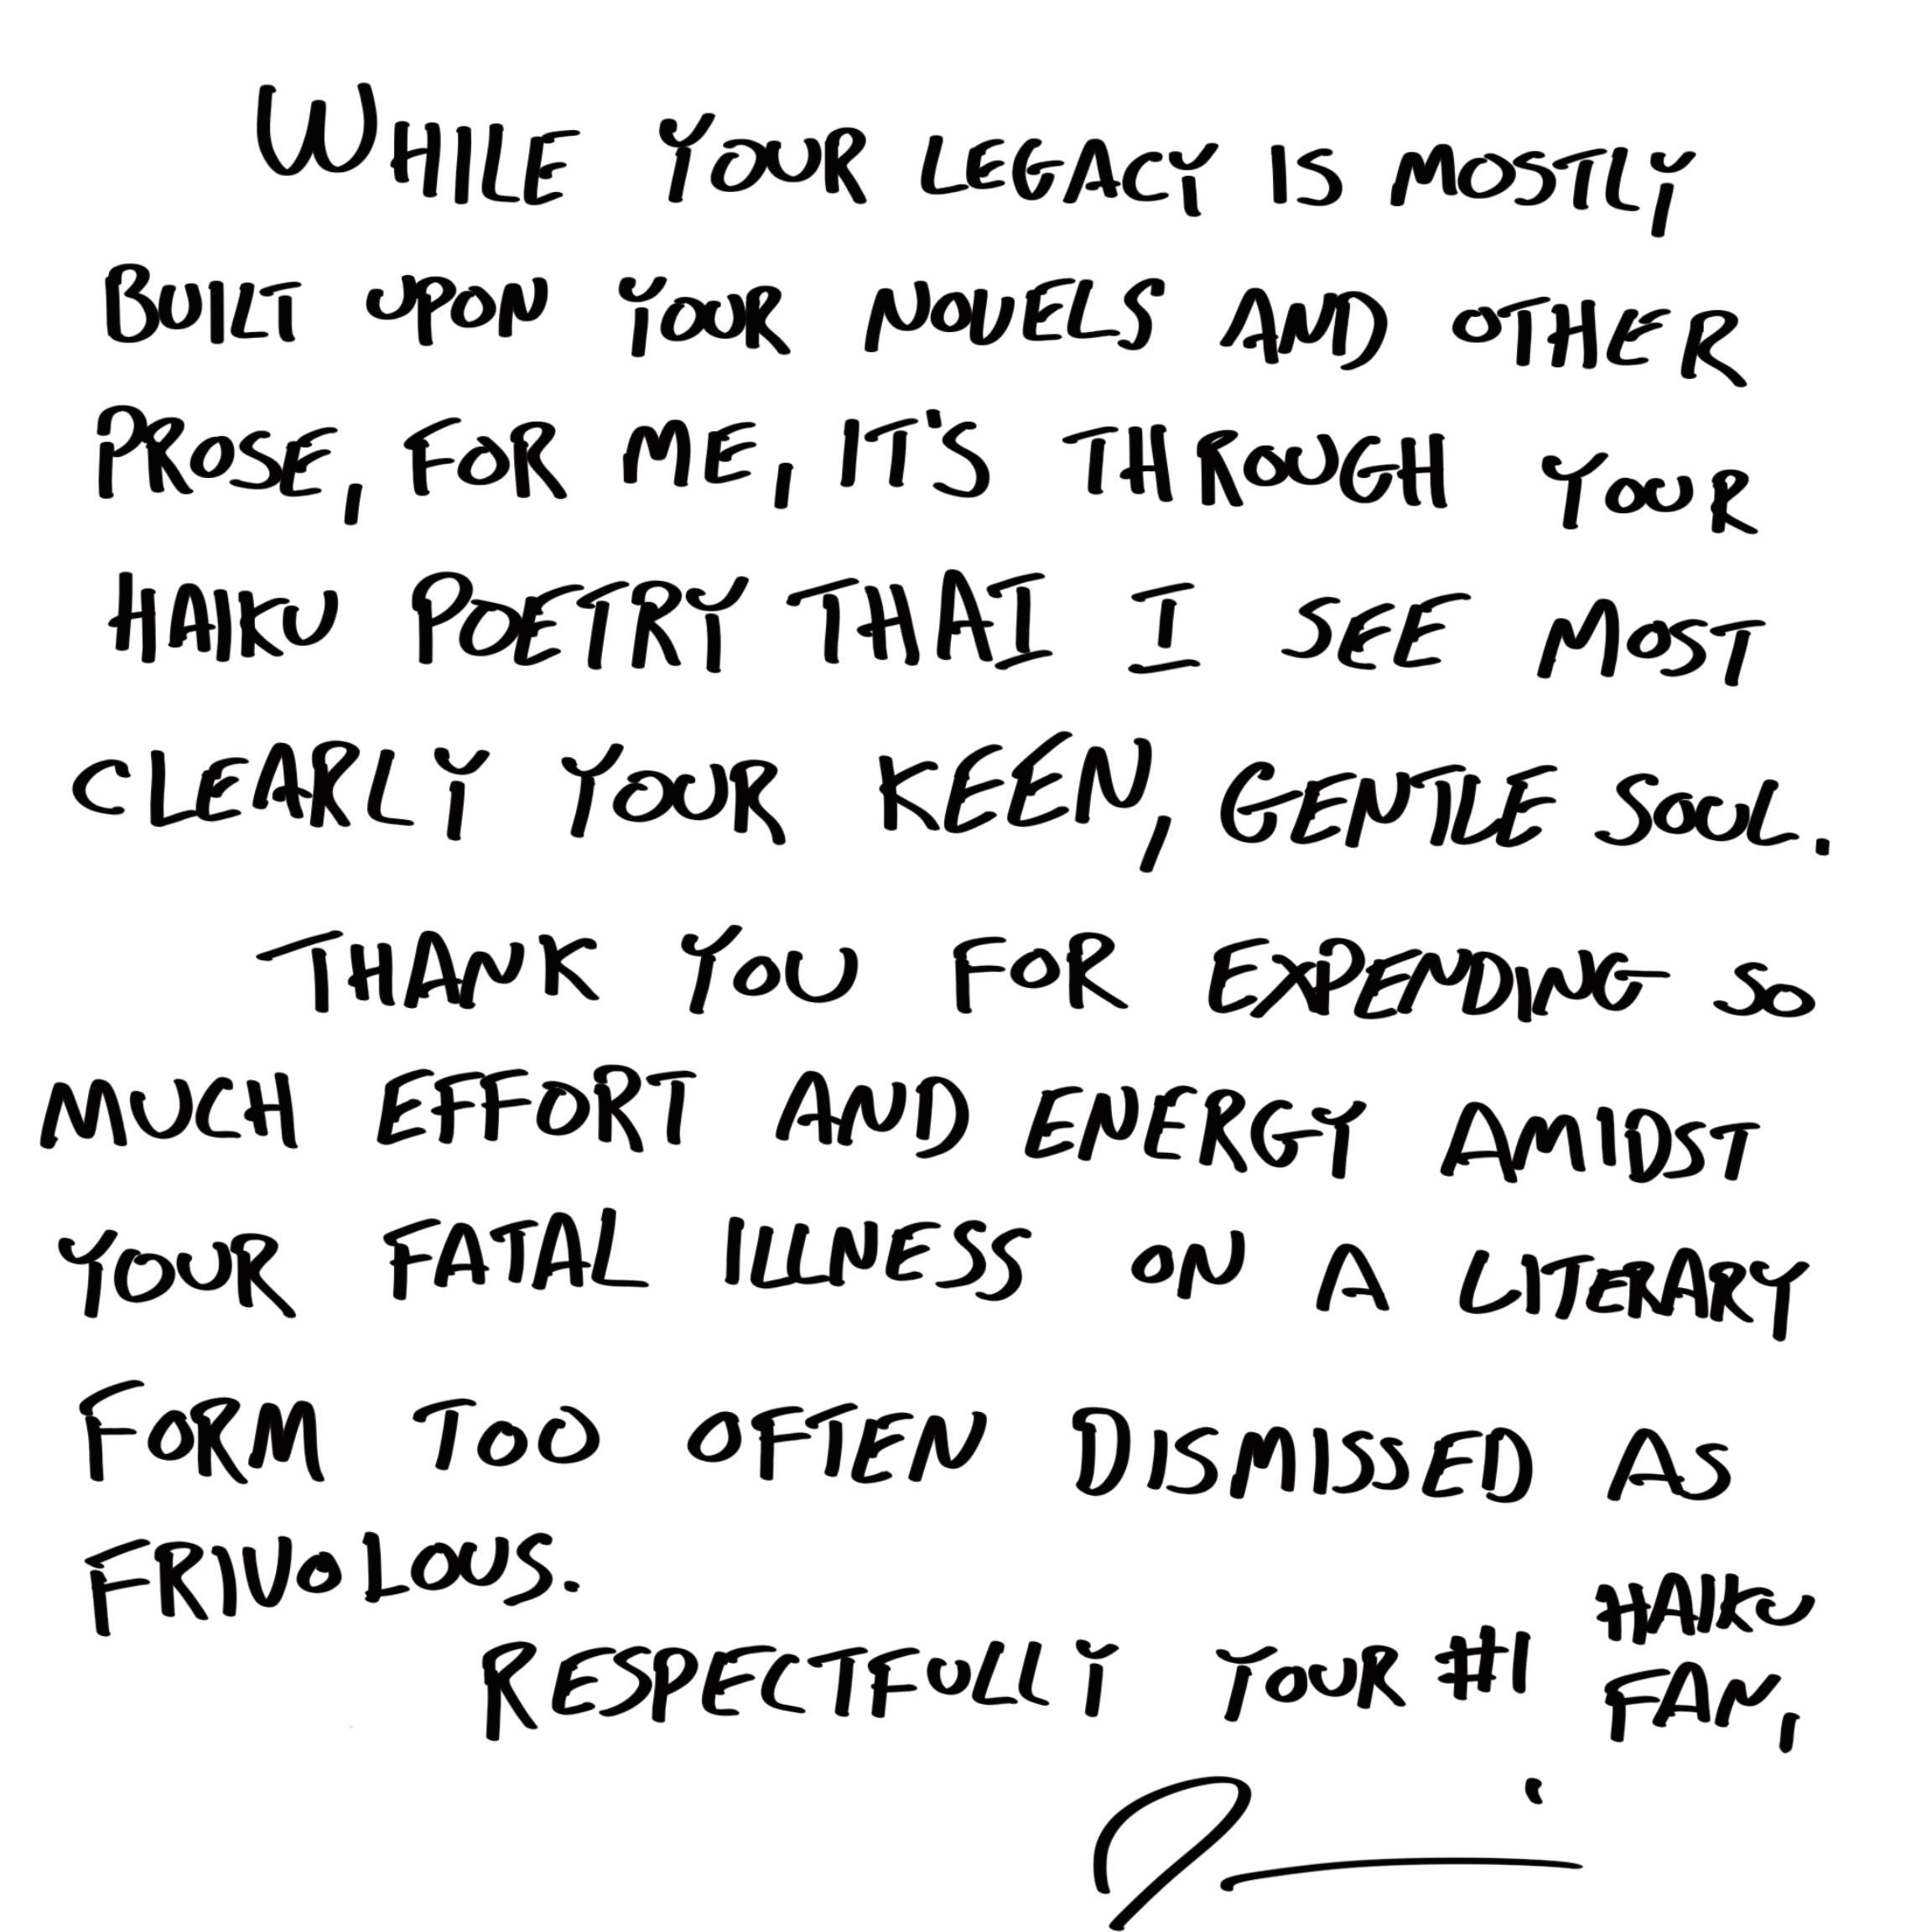 WHILE YOUR LEGACY IS MOSTLY
BUILT UPON YOUR NOVELS AND OTHER
PROSE, FOR ME, IT'S THROUGH YOUR
HAIKU POETRY THAT I SEE MOST
CLEARLY YOUR KEEN, GENTLE SOUL.
THANK YOU FOR EXPENDING SO
MUCH EFFORT AND ENERGY AMIDST
YOUR FATAL ILLNESS ON A LITERARY
FORM TOO OFTEN DISMISSED AS
FRIVOLOUS.
RESPECTFULLY YOUR #1 HAIKU
FAN,